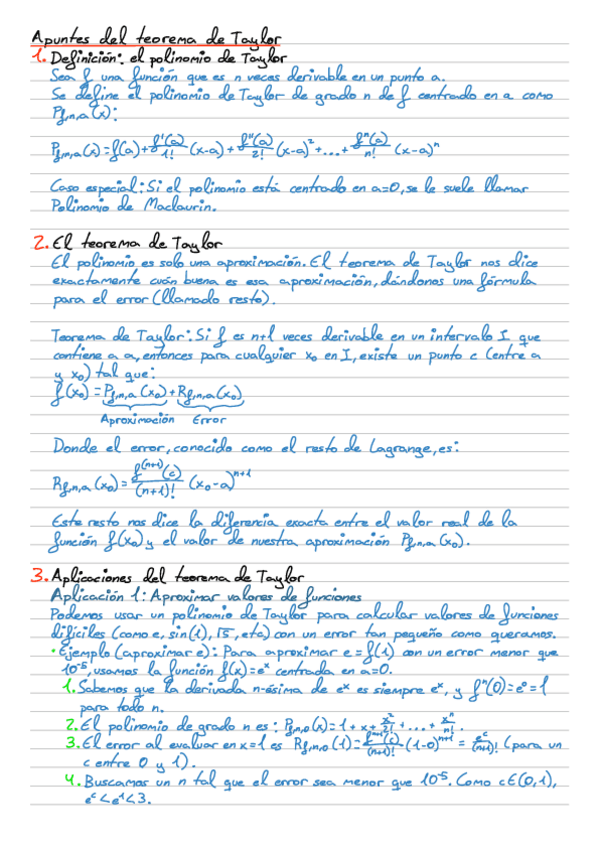 Apuntes del teorema de Taylor
1. Definición: el polinomio de Taylor
Sea f una función que es n veces derivable en un punto a.
Se define el polinomio de Taylor de grado n de f centrado en a como
Pf,n,a(x):
Pf,n,a(x)=f(a)+f'(a)/1! (x-a)+f''(a)/2! (x-a)²+...+fⁿ(a)/n! (x-a)ⁿ
Caso especial: Si el polinomio está centrado en a=0, se le suele llamar
Polinomio de Maclaurin.
2. El teorema de Taylor
El polinomio es solo una aproximación. El teorema de Taylor nos dice
exactamente cuán buena es esa aproximación, dándonos una fórmula
para el error (llamado resto).
Teorema de Taylor: Si f es n+1 veces derivable en un intervalo I que
contiene a a, entonces para cualquier x₀ en I, existe un punto c (entre a
y x₀) tal que:
f(x₀)=Pf,n,a(x₀)+Rf,n,a(x₀)
Aproximación Error
Donde el error, conocido como el resto de Lagrange, es:
Rf,n,a(x₀)=f⁽ⁿ⁺¹⁾(c)/(n+1)! (x₀-a)ⁿ⁺¹
Este resto nos dice la diferencia exacta entre el valor real de la
función f(x₀) y el valor de nuestra aproximación Pf,n,a(x₀).
3. Aplicaciones del teorema de Taylor
Aplicación 1: Aproximar valores de funciones
Podemos usar un polinomio de Taylor para calcular valores de funciones
difíciles (como e, sin(1), √5, etc) con un error tan pequeño como queramos.
• Ejemplo (aproximar e): Para aproximar e=f(1) con un error menor que
10⁻⁵, usamos la función f(x)=eˣ centrada en a=0.
1. Sabemos que la derivada n-ésima de eˣ es siempre eˣ, y fⁿ(0)=e⁰=1
para todo n.
2. El polinomio de grado n es: Pf,n,0(x)=1+x+x²/2!+...+xⁿ/n!.
3. El error al evaluar en x=1 es Rf,n,0(1)=fⁿ⁺¹(c)/(n+1)! (1-0)ⁿ⁺¹=eᶜ/(n+1)! (para un
c entre 0 y 1).
4. Buscamos un n tal que el error sea menor que 10⁻⁵. Como c∈(0,1),
eᶜ<e¹<3.